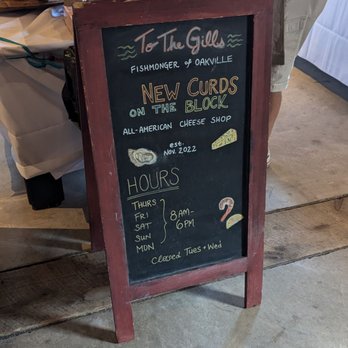 To The Gills
FISHMONGER of OAKVILLE
NEW CURDS
ON THE BLOCK
ALL-AMERICAN CHEESE SHOP
est.
Nov. 2022
HOURS
THURS
FRI
SAT
SUN
MON
8AM-
6PM
Closed Tues + Wed